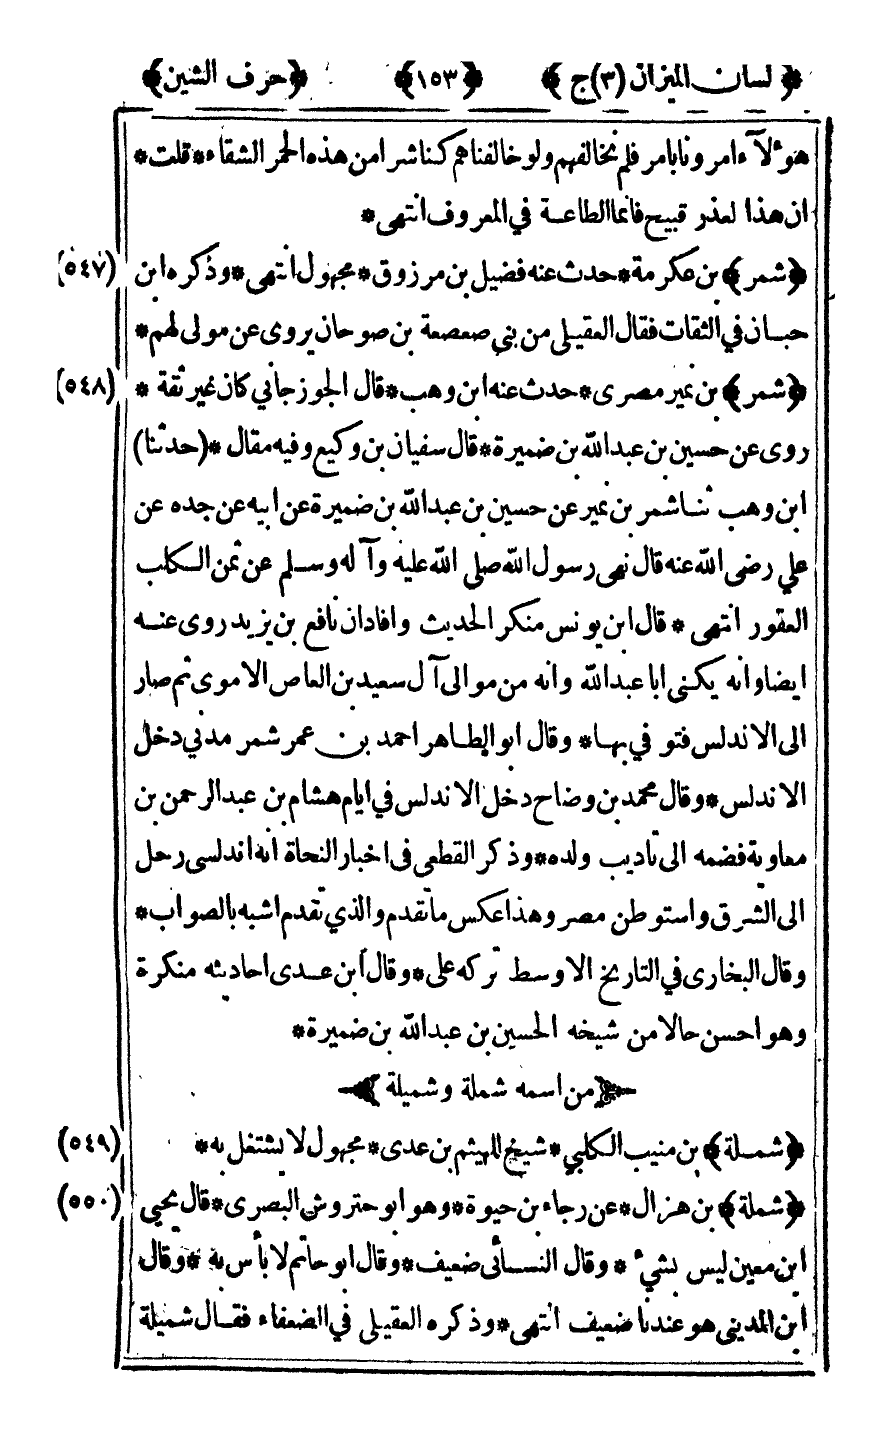 ﴿ لسان الميزان (٣) ج ﴾ ﴿ ١٥٣ ﴾ ﴿ حرف الشين ﴾
هؤلآء امرونا بامر فلم نخالفهم ولو خالفناهم كنا شرا من هذه الحمر الشقاء * قلت *
ان هذا لعذر قبيح فانما الطاعة في المعروف انتهى *
(٥٤٧) ﴿ شمر ﴾ بن عكرمة * حدث عنه فضيل بن مرزوق * مجهول انتهى * وذكره ابن
حبان في الثقات فقال العقيلى من بني صعصعة بن صوحان يروى عن مولى لهم *
(٥٤٨) ﴿ شمر ﴾ بن نمير مصرى * حدث عنه ابن وهب * قال الجوزجاني كان غير ثقة *
روى عن حسين بن عبدالله بن ضميرة * قال سفيان بن وكيع وفيه مقال * (حدثنا)
ابن وهب ثنا شمر بن نمير عن حسين بن عبدالله بن ضميرة عن ابيه عن جده عن
علي رضى الله عنه قال نهى رسول الله صلى الله عليه وآله وسلم عن ثمن الكلب
العقور انتهى * قال ابن يونس منكر الحديث وافاد ان نافع بن يزيد روى عنه
ايضا وانه يكنى ابا عبدالله وانه من موالى آل سعيد بن العاص الاموى ثم صار
الى الاندلس فتوفي بها * وقال ابو الطاهر احمد بن عمر شمر مدني دخل
الاندلس * وقال محمد بن وضاح دخل الاندلس في ايام هشام بن عبدالرحمن بن
معاوية فضمه الى تاديب ولده * وذكر القطعى فى اخبار النحاة انه اندلسى رحل
الى الشرق واستوطن مصر وهذا عكس ما تقدم والذي تقدم اشبه بالصواب *
وقال البخارى في التاريخ الاوسط تركه على * وقال ابن عدى احاديثه منكرة
وهو احسن حالا من شيخه الحسين بن عبدالله بن ضميرة *
﴿ من اسمه شملة وشميلة ﴾
(٥٤٩) ﴿ شملة ﴾ بن منيب الكلبي * شيخ للهيثم بن عدى * مجهول لا يشتغل به *
(٥٥٠) ﴿ شملة ﴾ بن هزال * عن رجاء بن حيوة * وهو ابو حتروش البصرى * قال يحيى
ابن معين ليس بشيء * وقال النسائى ضعيف * وقال ابو حاتم لا بأس به * وقال
ابن المدينى هو عندنا ضعيف انتهى * وذكره العقيلى في الضعفاء فقال شميلة